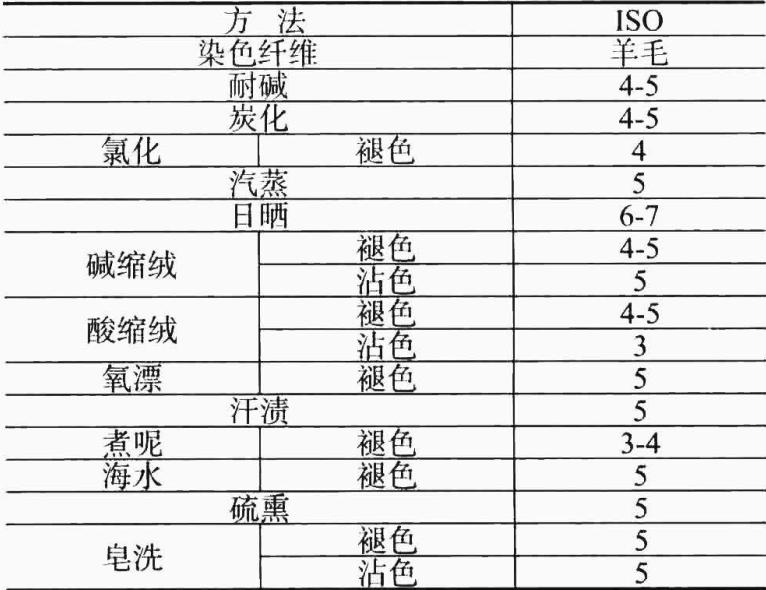 方 法 ISO
染色纤维 羊毛
耐碱 4-5
炭化 4-5
氯化 褪色 4
汽蒸 5
日晒 6-7
碱缩绒 褪色 4-5
沾色 5
酸缩绒 褪色 4-5
沾色 3
氧漂 褪色 5
汗渍 5
煮呢 褪色 3-4
海水 褪色 5
硫熏 5
皂洗 褪色 5
沾色 5